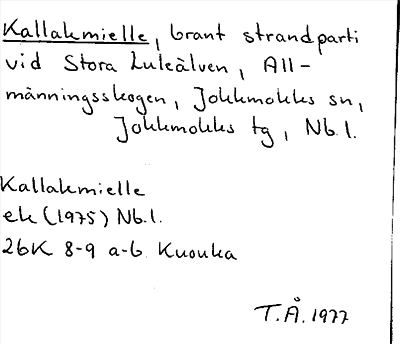 Kallakmielle, brant strandparti
vid Stora Luleälven, All-
männingsskogen, Jokkmokks sn,
Jokkmokks tg, Nb.l.
Kallakmielle
ek (1975) Nb.l.
26K 8-9 a-b Kuouka
T.Å. 1977